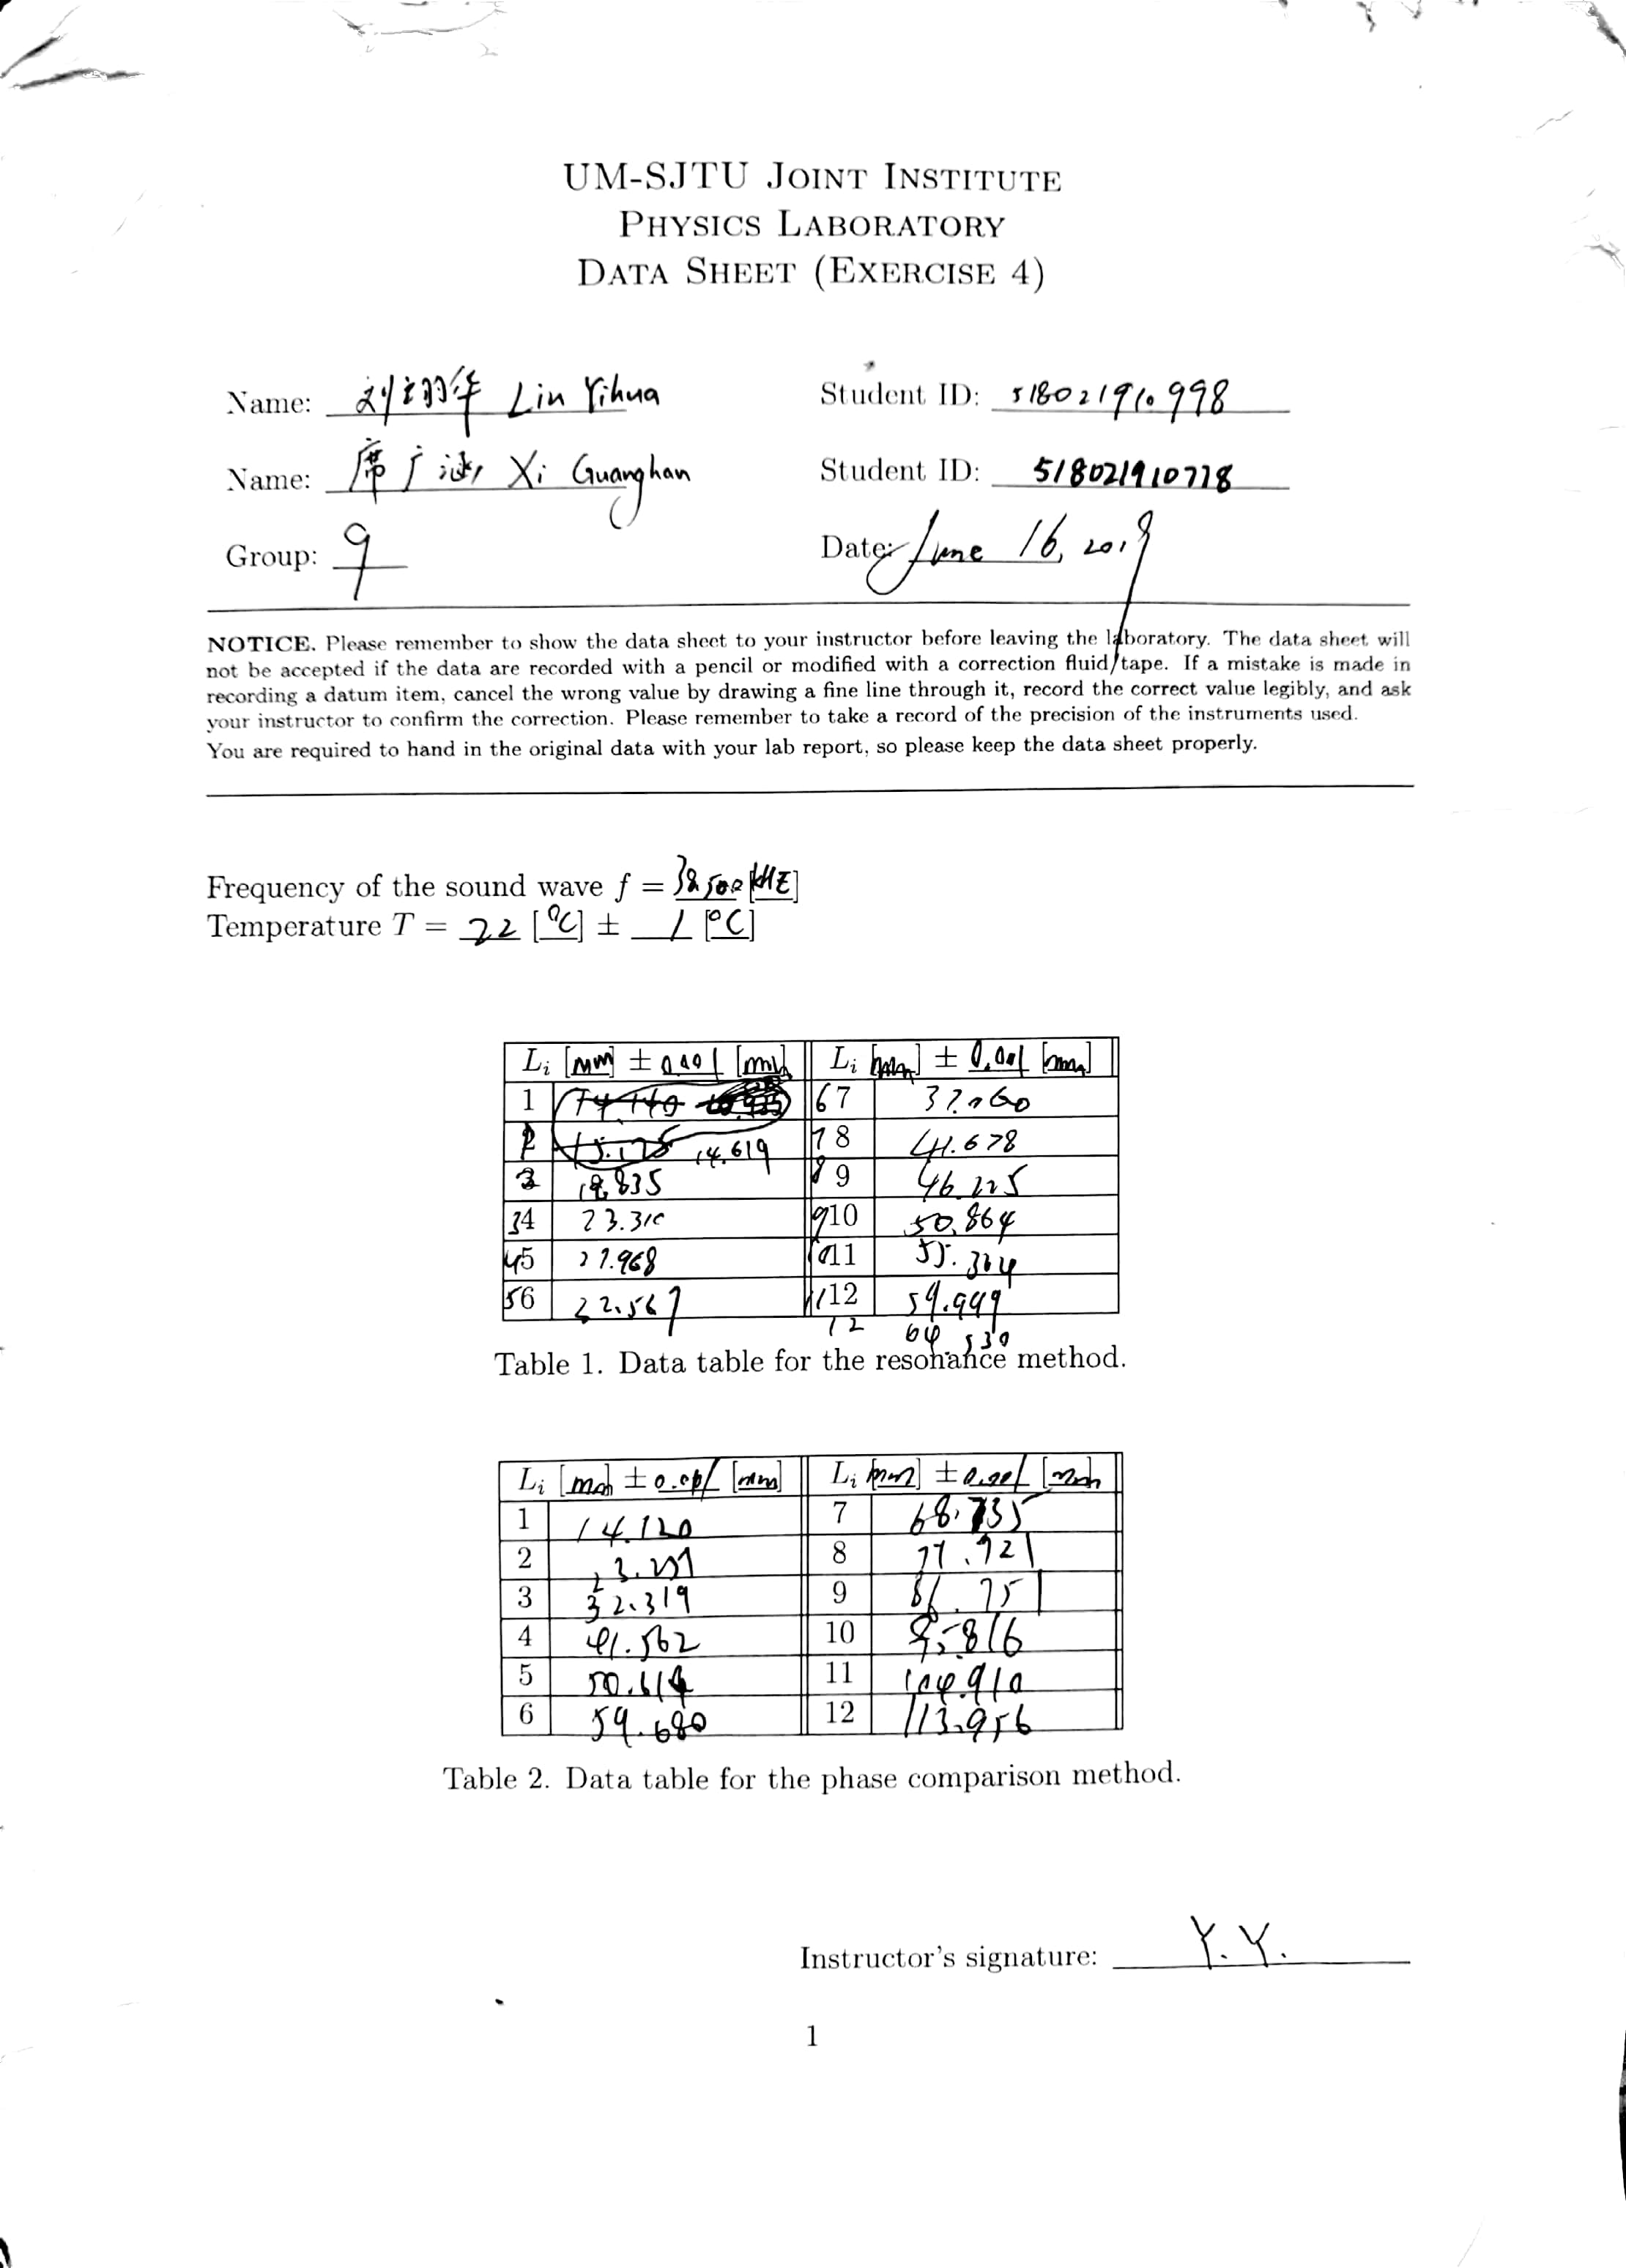 UM-SJTU JOINT INSTITUTE
PHYSICS LABORATORY
DATA SHEET (EXERCISE 4)
Name: 刘翊华 Liu Yihua Student ID: 518021910998
Name: 席广涵 Xi Guanghan Student ID: 518021910778
Group: 9 Date: June 16, 2019
NOTICE. Please remember to show the data sheet to your instructor before leaving the laboratory. The data sheet will
not be accepted if the data are recorded with a pencil or modified with a correction fluid/tape. If a mistake is made in
recording a datum item, cancel the wrong value by drawing a fine line through it, record the correct value legibly, and ask
your instructor to confirm the correction. Please remember to take a record of the precision of the instruments used.
You are required to hand in the original data with your lab report, so please keep the data sheet properly.
Frequency of the sound wave f = [kHz]
Temperature T = 22 [°C] ± 1 [°C]
Li [mm] ± 0.001 [mm] Li [mm] ± 0.001 [mm]
1 6 7 37.060
14.619 7 8 41.678
18.835 8 9 46.225
3 4 23.310 9 10 50.864
4 5 27.968 10 11 55.324
5 6 11 12 59.949
12 64.530
Table 1. Data table for the resonance method.
Li [mm] ± 0.001 [mm] Li [mm] ± 0.001 [mm]
1 14.120 7 68.735
2 8 77.721
3 32.319 9 86.751
4 41.562 10 95.816
5 50.614 11 104.910
6 59.680 12 113.956
Table 2. Data table for the phase comparison method.
Instructor's signature: Y.Y.
1